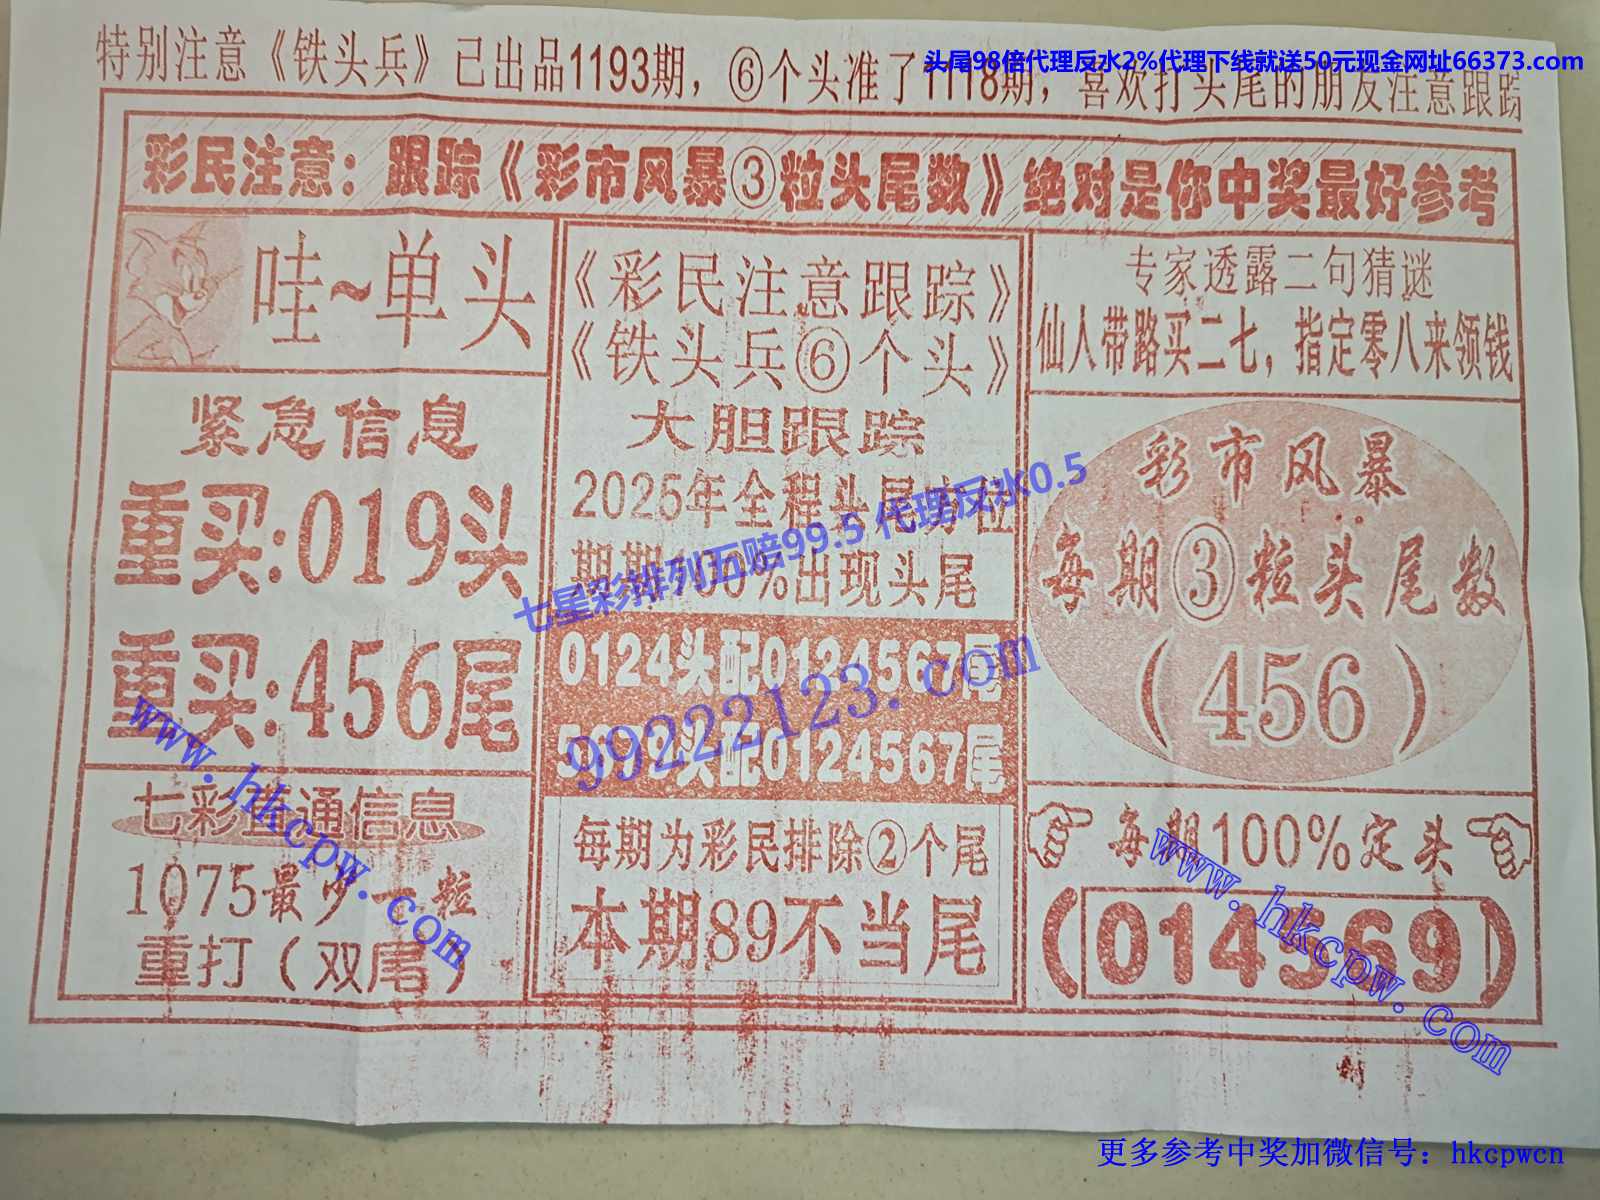 特别注意《铁头兵》已出品1193期，⑥个头准了1118期，喜欢打头尾的朋友注意跟踪
头尾98倍代理反水2%代理下线就送50元现金网址66373.com
彩民注意：跟踪《彩市风暴③粒头尾数》绝对是你中奖最好参考
哇~单头
紧急信息
重买:019头
重买:456尾
七彩直通信息
1075最少一粒
重打（双尾）
《彩民注意跟踪》
《铁头兵⑥个头》
大胆跟踪
2025年全程头尾方位
期期100%出现头尾
0124头配01234567尾
头配01234567尾
每期为彩民排除②个尾
本期89不当尾
专家透露二句猜谜
仙人带路买二七，指定零八来领钱
彩市风暴
每期③粒头尾数
（456）
每期100%定头
（014569）
七星彩排列五赔99.5 代理反水0.5
99222123.com
www.hkcpw.com
www.hkcpw.com
更多参考中奖加微信号：hkcpwcn